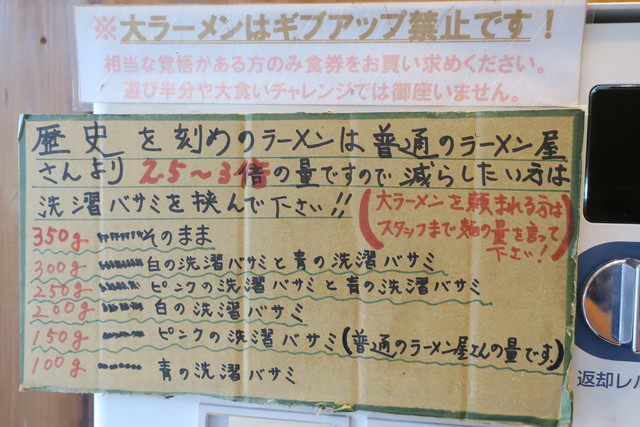 ※大ラーメンはギブアップ禁止です！
相当な覚悟がある方のみ食券をお買い求めください。
遊び半分や大食いチャレンジでは御座いません。
歴史を刻めのラーメンは普通のラーメン屋
さんより2.5～3倍の量ですので減らしたい方は
洗濯バサミを挟んで下さい!!
(大ラーメンを頼まれる方は
スタッフまで麺の量を言って
下さい!)
350g そのまま
300g 白の洗濯バサミと青の洗濯バサミ
250g ピンクの洗濯バサミと青の洗濯バサミ
200g 白の洗濯バサミ
150g ピンクの洗濯バサミ(普通のラーメン屋さんの量です)
100g 青の洗濯バサミ
返却レバ